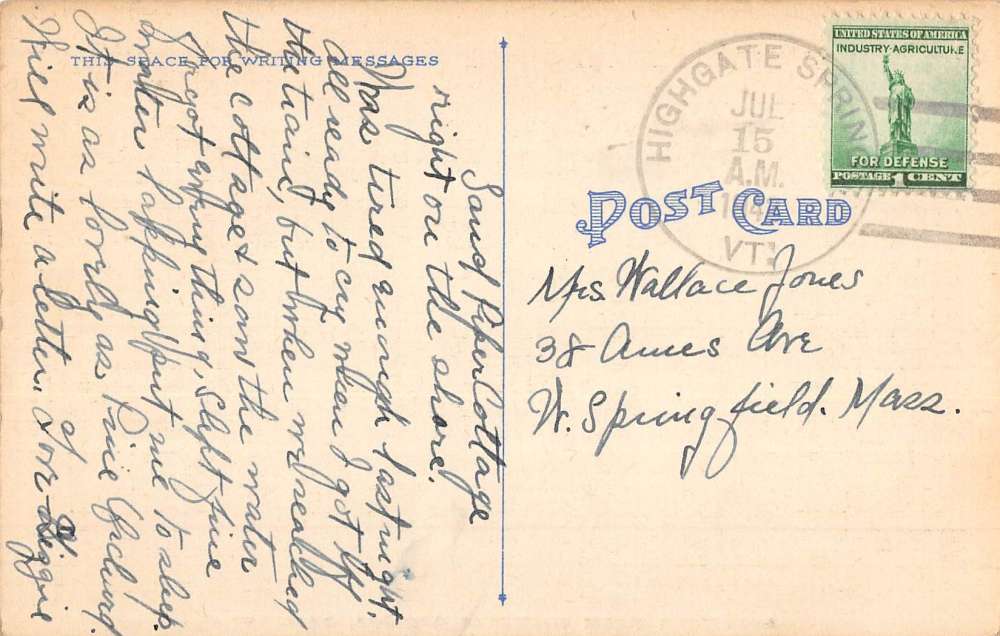 THIS SPACE FOR WRITING MESSAGES
Sand Piper Cottage
right on the shore.
Was tired enough last night.
all ready to cry when I got off
the train, but when we reached
the cottage & saw the water
forgot everything, Slept fine
water lapping put me to sleep.
It is as lovely as Pine Orchard.
Will write a letter. Love Lizzie
HIGHGATE SPRING
JUL
15
A.M.
VT.
UNITED STATES OF AMERICA
INDUSTRY·AGRICULTURE
FOR DEFENSE
POSTAGE 1 CENT
POST CARD
Mrs. Wallace Jones
38 Ames Ave
W. Springfield. Mass.